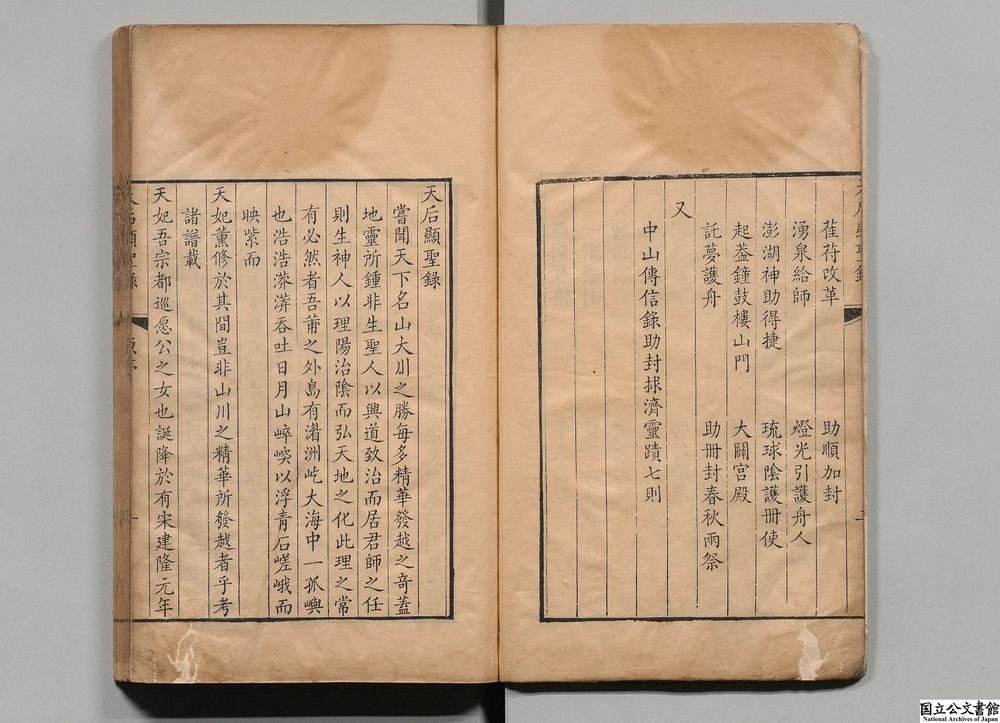 萑苻改革 助順加封
湧泉給師 燈光引護舟人
澎湖神助得捷 琉球陰護册使
起葢鐘鼓樓山門 大闢宫殿
託夢護舟 助册封春秋兩祭
又
中山傳信錄助封捄濟靈蹟七則
天后顯聖録
嘗聞天下名山大川之勝每多精華發越之竒蓋
地靈所鍾非生聖人以興道致治而居君師之任
則生神人以理陽治陰而弘天地之化此理之常
有必然者吾莆之外島有渚洲屹大海中一孤嶼
也浩浩漭漭吞吐日月山崪㟧以浮青石嵯峨而
映紫而
天妃薰修於其間豈非山川之精華所發越者乎考
諸譜載
天妃吾宗都巡愿公之女也誕降於有宋建隆元年
国立公文書館
National Archives of Japan